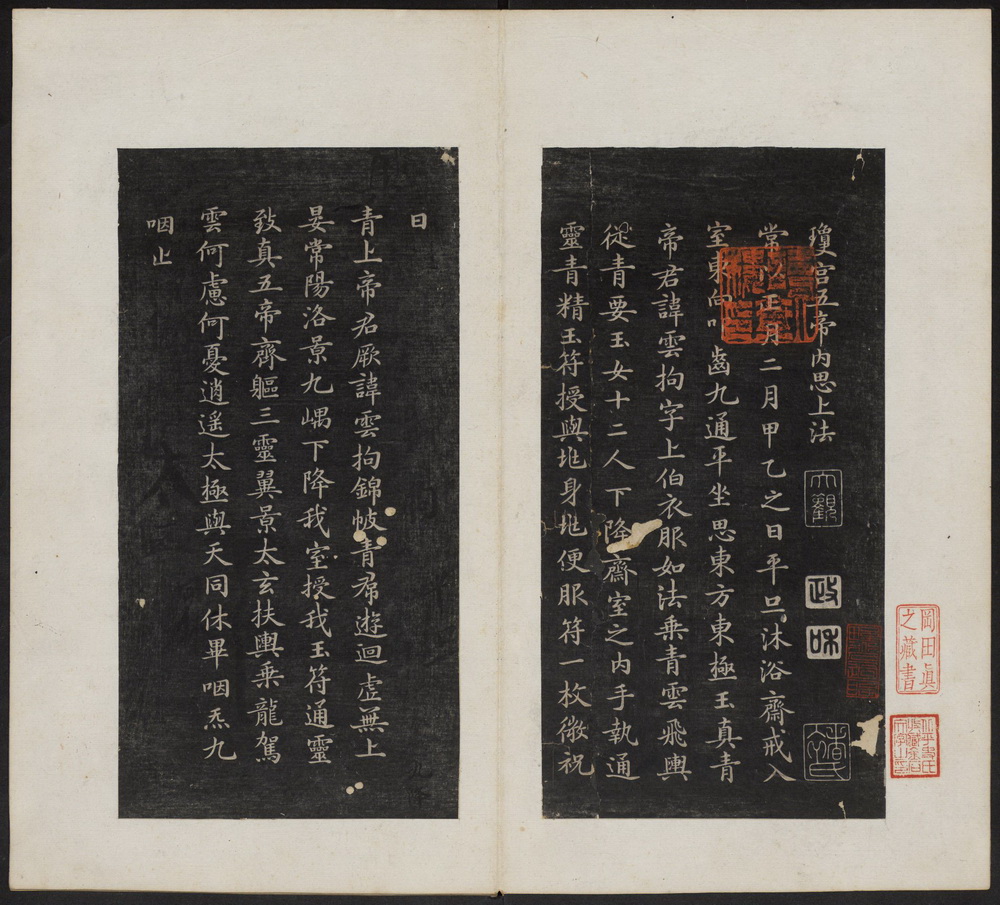 瓊宮五帝内思上法
常以正月二月甲乙之日平旦沐浴齋戒入
室東向叩齒九通平坐思東方東極玉真青
帝君諱雲拘字上伯衣服如法乗青雲飛輿
従青要玉女十二人下降齋室之内手執通
靈青精玉符授與地身地便服符一枚微祝
曰
青上帝君厥諱雲拘錦帔青帬遊迴虛無上
晏常陽洛景九嵎下降我室授我玉符通靈
致真五帝齊軀三靈翼景太玄扶輿乗龍駕
雲何慮何憂逍遥太極與天同休畢咽炁九
咽止
大觀
政
和
岡田眞
之藏書